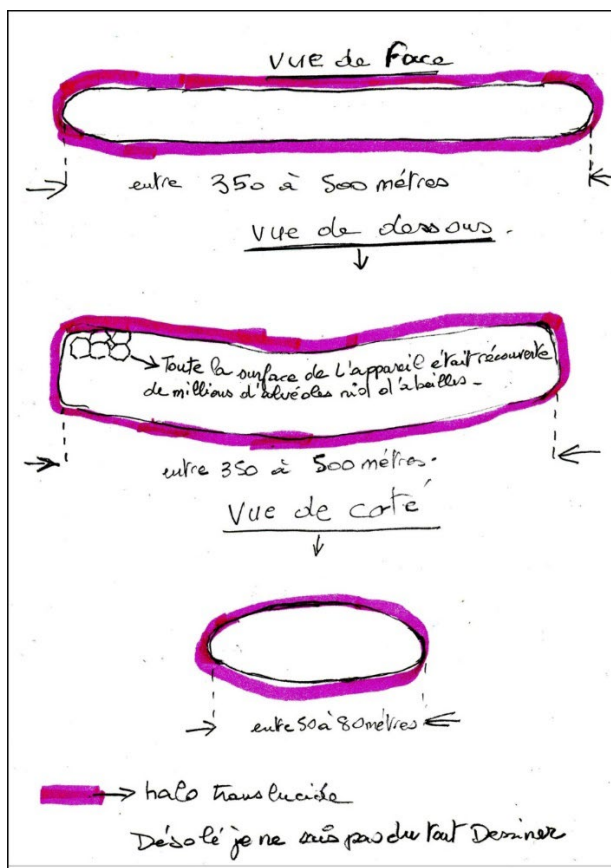 Vue de Face
entre 350 à 500 métres
Vue de dessous.
Toute la surface de L'appareil était récouverte
de millions d'alvéoles nid d'abeilles-
entre 350 à 500 métres.
Vue de corté
entre 50 à 80 métres
halo translucide
Désolé je ne sais pas du tout Dessiner